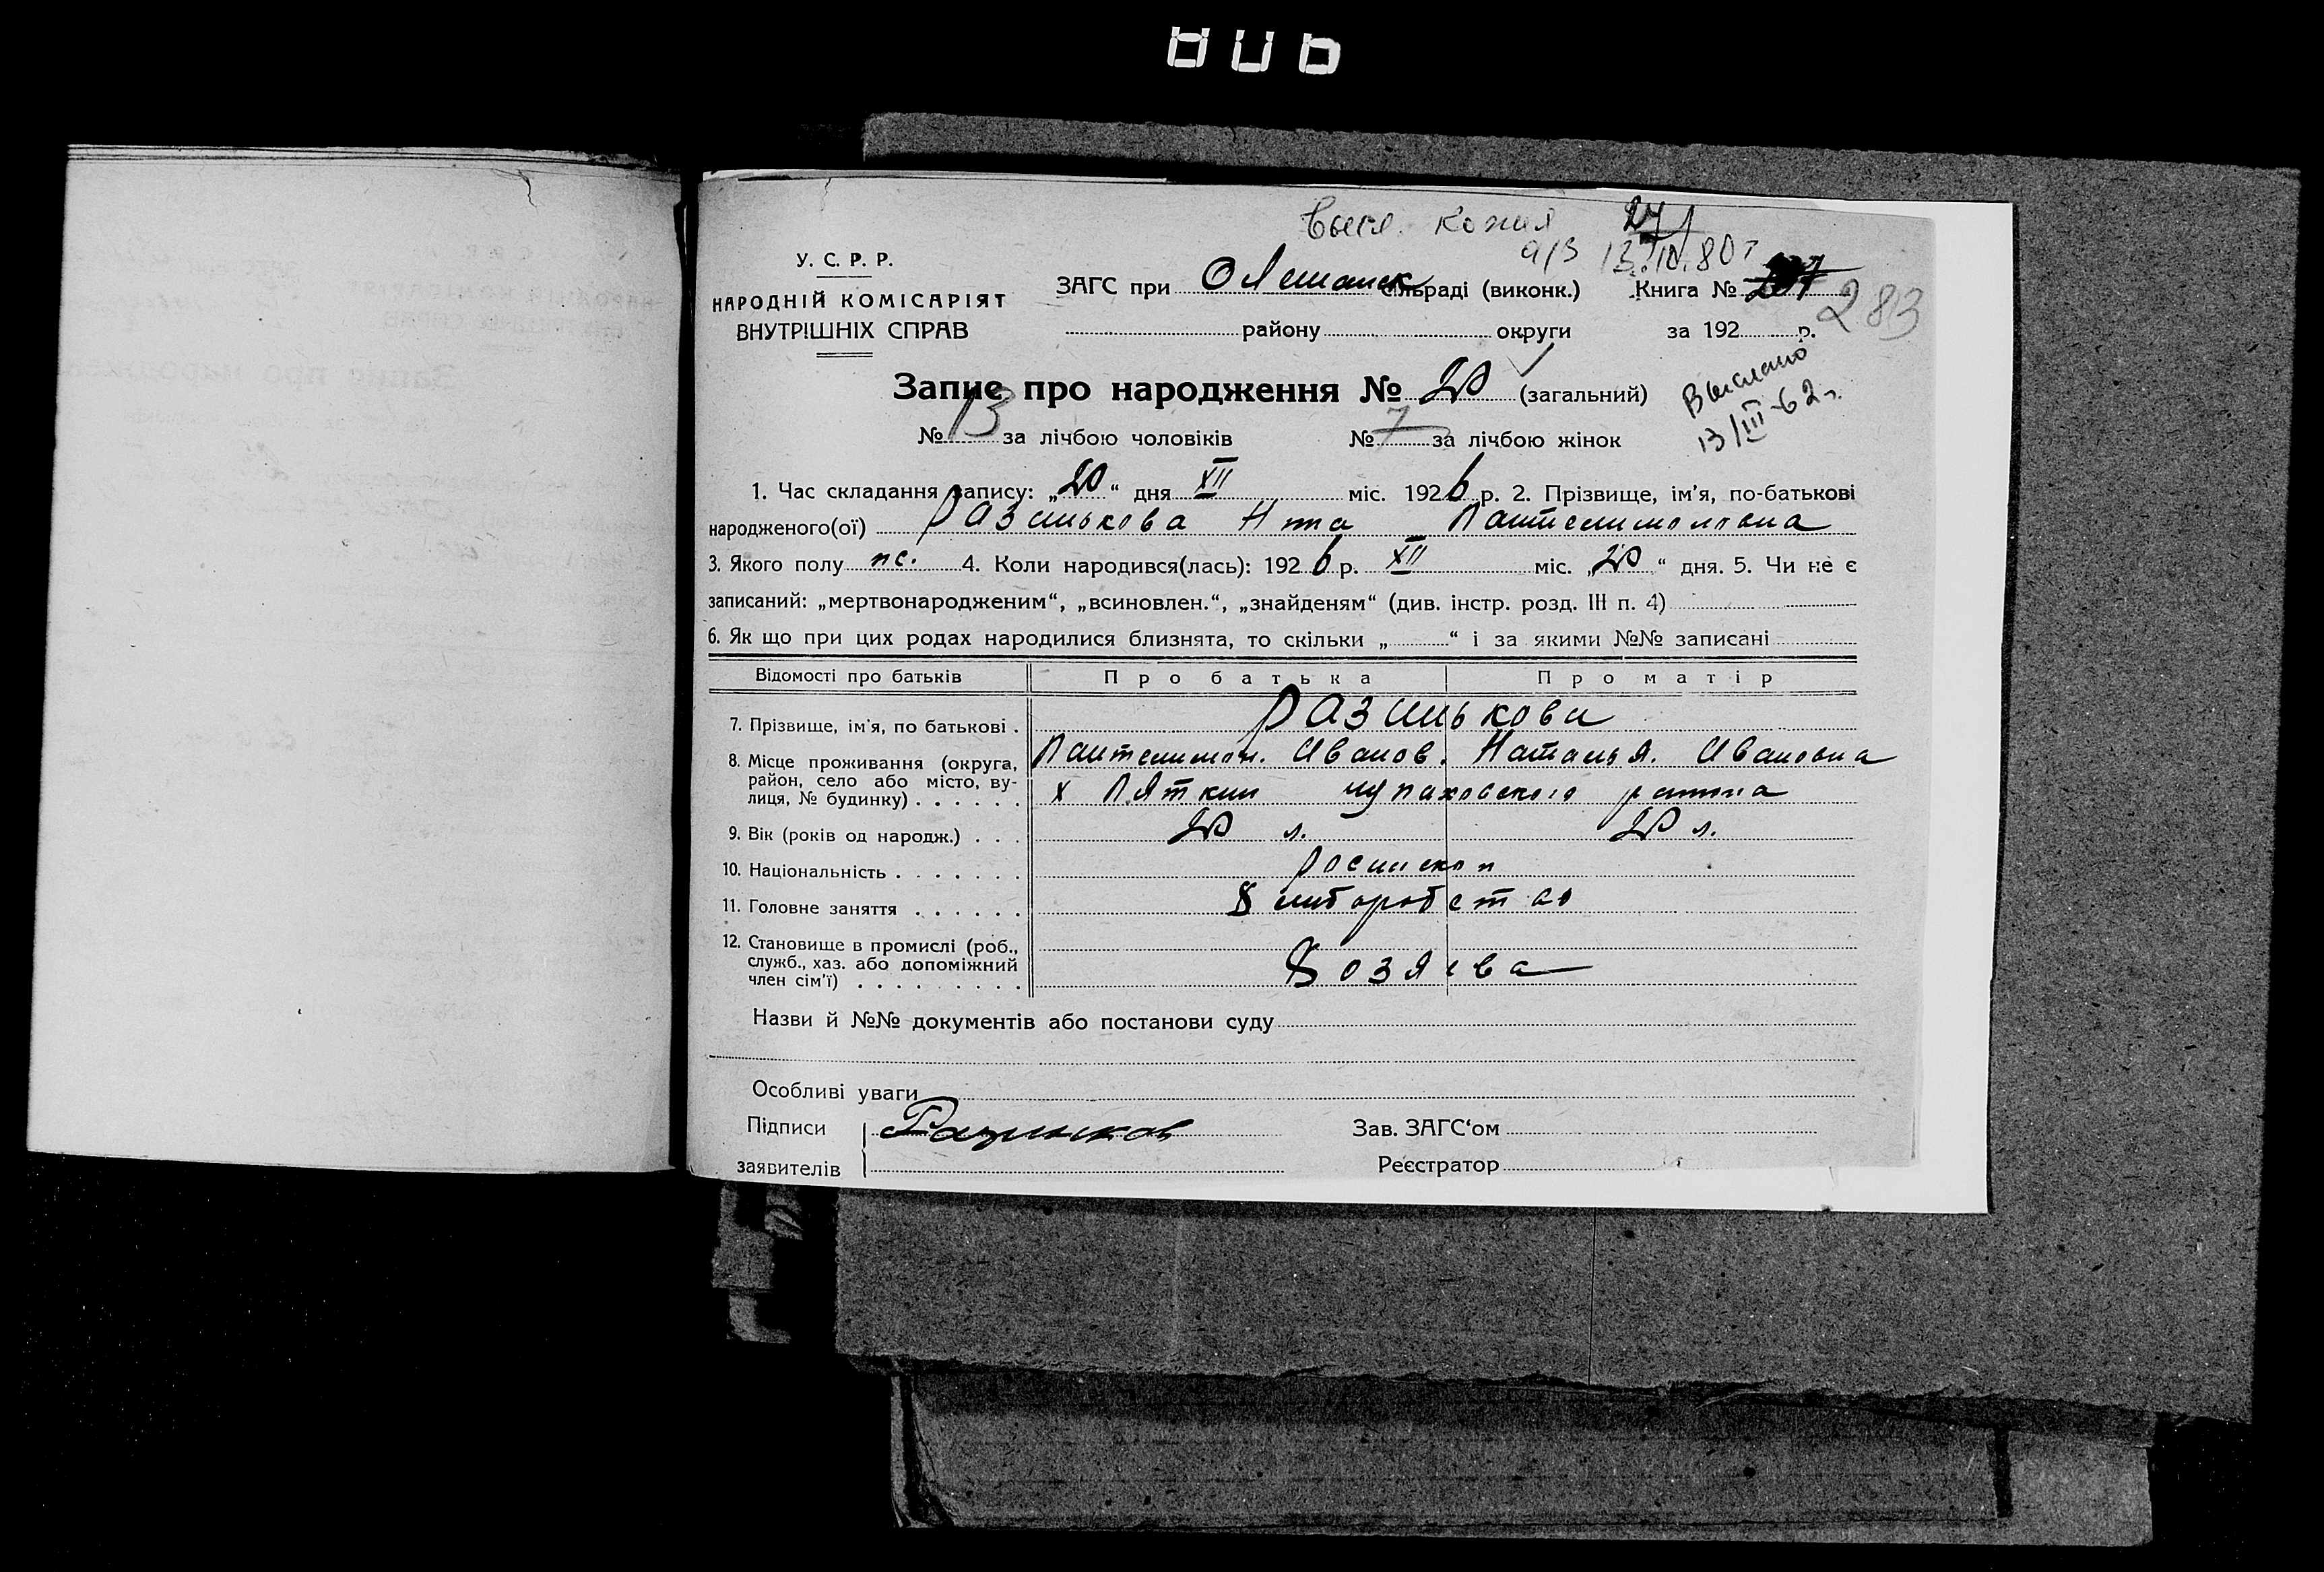 Высл. копия 271
а/з 13.IV.80г
У. С. Р. Р.
НАРОДНІЙ КОМІСАРІЯТ
ВНУТРІШНІХ СПРАВ
ЗАГС при Олешанск сільраді (виконк.) Книга №
283
району округи за 192 р.
Запис про народження № 20 (загальний)
Выслано
13/III-62г.
№ 13 за лічбою чоловіків № 7 за лічбою жінок
1. Час складання запису: „20“ дня XII міс. 1926 р. 2. Прізвище, ім'я, по-батькові
народженого(ої) Разинькова Пантелимоновна
3. Якого полу 4. Коли народився(лась): 1926 р. XII міс. „20“ дня. 5. Чи не є
записаний: „мертвонародженим“, „всиновлен.“, „знайденям“ (див. інстр. розд. III п. 4)
6. Як що при цих родах народилися близнята, то скільки „ “ і за якими №№ записані
Відомості про батьків Про батька Про матір
7. Прізвище, ім'я, по батькові . Разинькови
8. Місце проживання (округа, Пантелимон. Иванов. Наталья. Ивановна
район, село або місто, ву-
лиця, № будинку) . . . . . . х Пяткин чупаховского района
9. Вік (років од народж.) . . . 20 л. 20 л.
10. Національність . . . . . . .
11. Головне заняття . . . . . . хлиборобство
12. Становище в промислі (роб.,
служб., хаз. або допоміжний
член сім'ї) . . . . . . . . . Хозяева
Назви й №№ документів або постанови суду
Особливі уваги
Підписи Разиньков Зав. ЗАГС'ом
заявителів Реєстратор